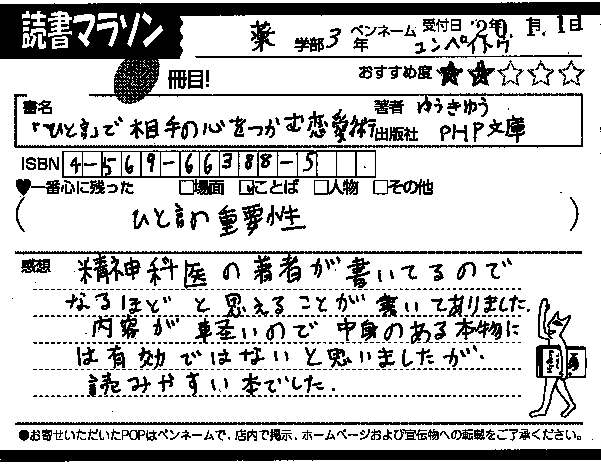 読書マラソン
薬 学部 3 年 ペンネーム コンペイトウ 受付日 '20年 1月 1日
冊目! おすすめ度 ★★☆☆☆
書名 「ひと言」で相手の心をつかむ恋愛術 著者 ゆうきゆう
出版社 PHP文庫
ISBN 4-569-66388-5
♥一番心に残った □場面 ☑ことば □人物 □その他
( ひと言の重要性 )
感想 精神科医の著者が書いてるので
なるほどと思えることが書いてありました。
内容が軽いので中身のある本物に
は有効ではないと思いましたが、
読みやすい本でした。
●お寄せいただいたPOPはペンネームで、店内で掲示、ホームページおよび宣伝物への転載をご了承ください。